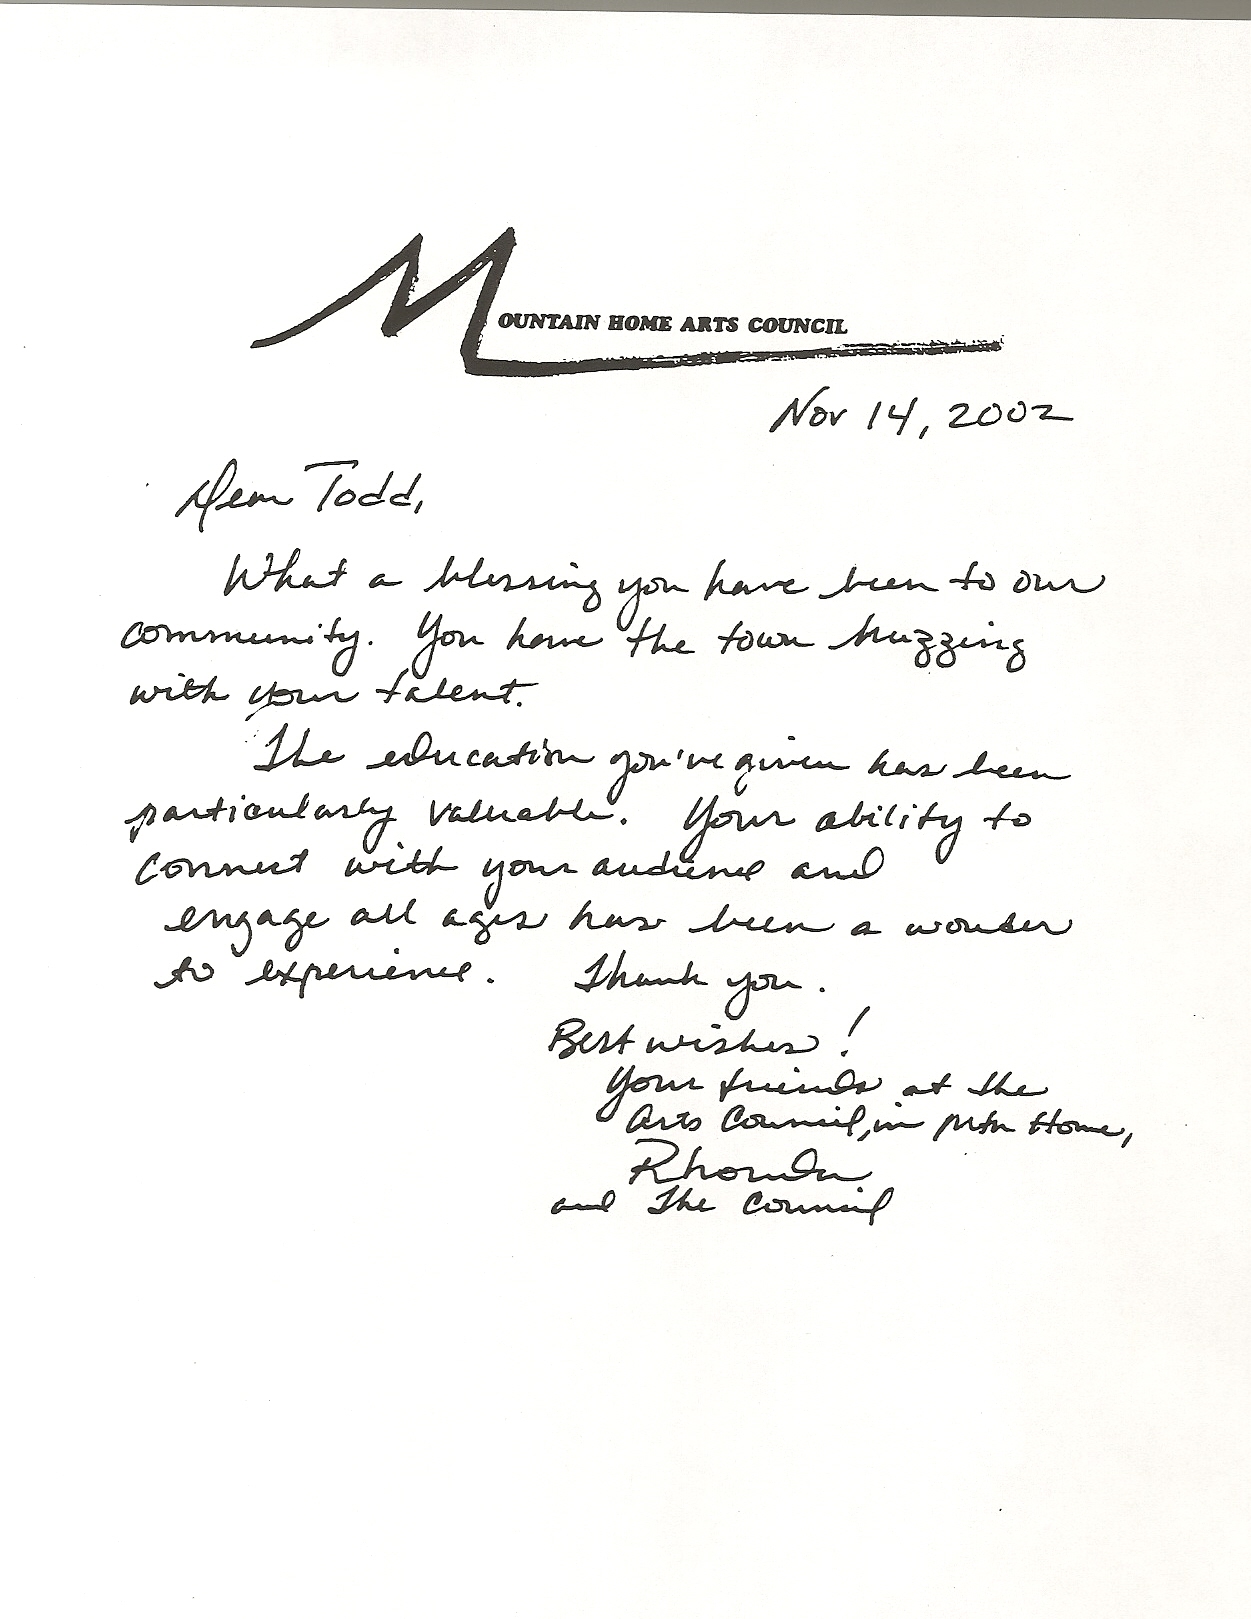 MOUNTAIN HOME ARTS COUNCIL
Nov 14, 2002
Dear Todd,
What a blessing you have been to our
community. You have the town buzzing
with your talent.
The education you've given has been
particularly valuable. Your ability to
connect with your audience and
engage all ages has been a wonder
to experience. Thank you.
Best wishes!
Your friends at the
Arts Council, in Mtn Home,
Rhonda
and the Council